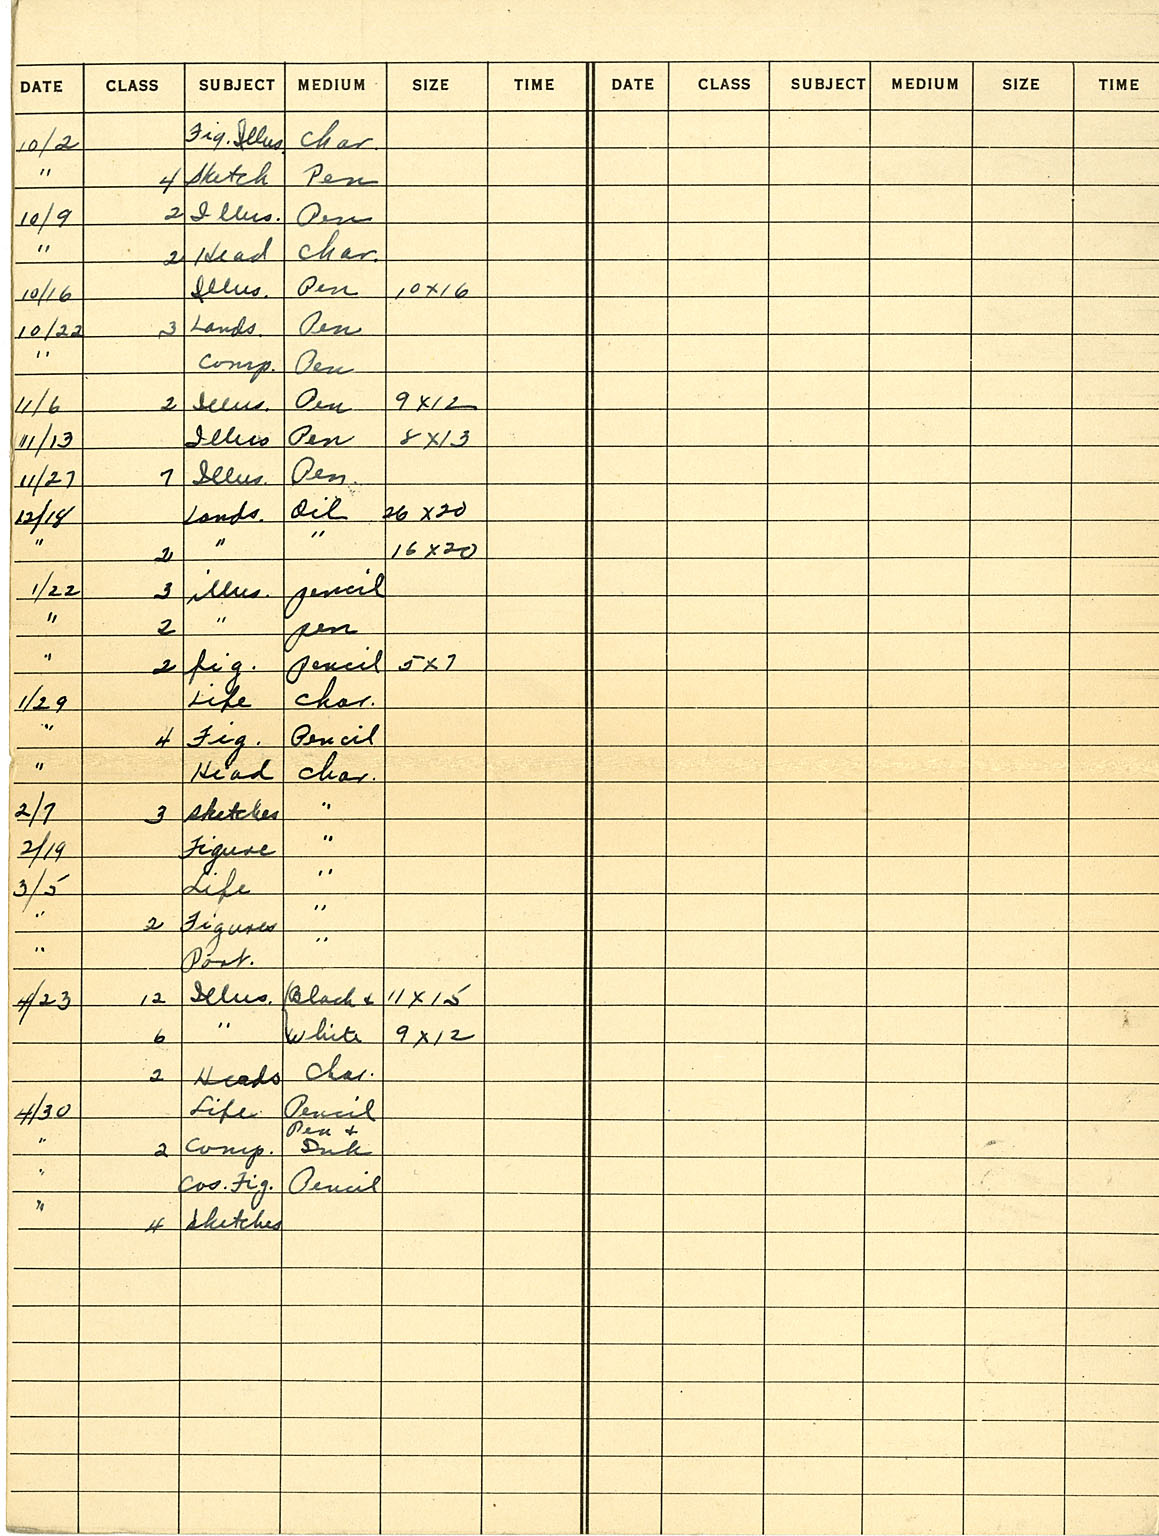 DATE CLASS SUBJECT MEDIUM SIZE TIME DATE CLASS SUBJECT MEDIUM SIZE TIME
10/2 Fig. Illus. Char.
" 4 Sketch Pen
10/9 2 Illus. Pen
" 2 Head Char.
10/16 Illus. Pen 10x16
10/22 3 Lands. Pen
" Comp. Pen
11/6 2 Illus. Pen 9x12
11/13 Illus Pen 8x13
11/27 7 Illus. Pen.
12/18 Lands. Oil 26x20
" 2 " " 16x20
1/22 3 illus. pencil
" 2 " pen
" 2 fig. pencil 5x7
1/29 Life Char.
" 4 Fig. Pencil
" Head Char.
2/7 3 Sketches "
2/19 Figure "
3/5 Life "
" 2 Figures "
" Port.
4/23 12 Illus. Black + 11x15
6 " White 9x12
2 Heads Char.
4/30 Life Pencil
Pen +
" 2 Comp. Ink
" Cos. Fig. Pencil
" 4 Sketches